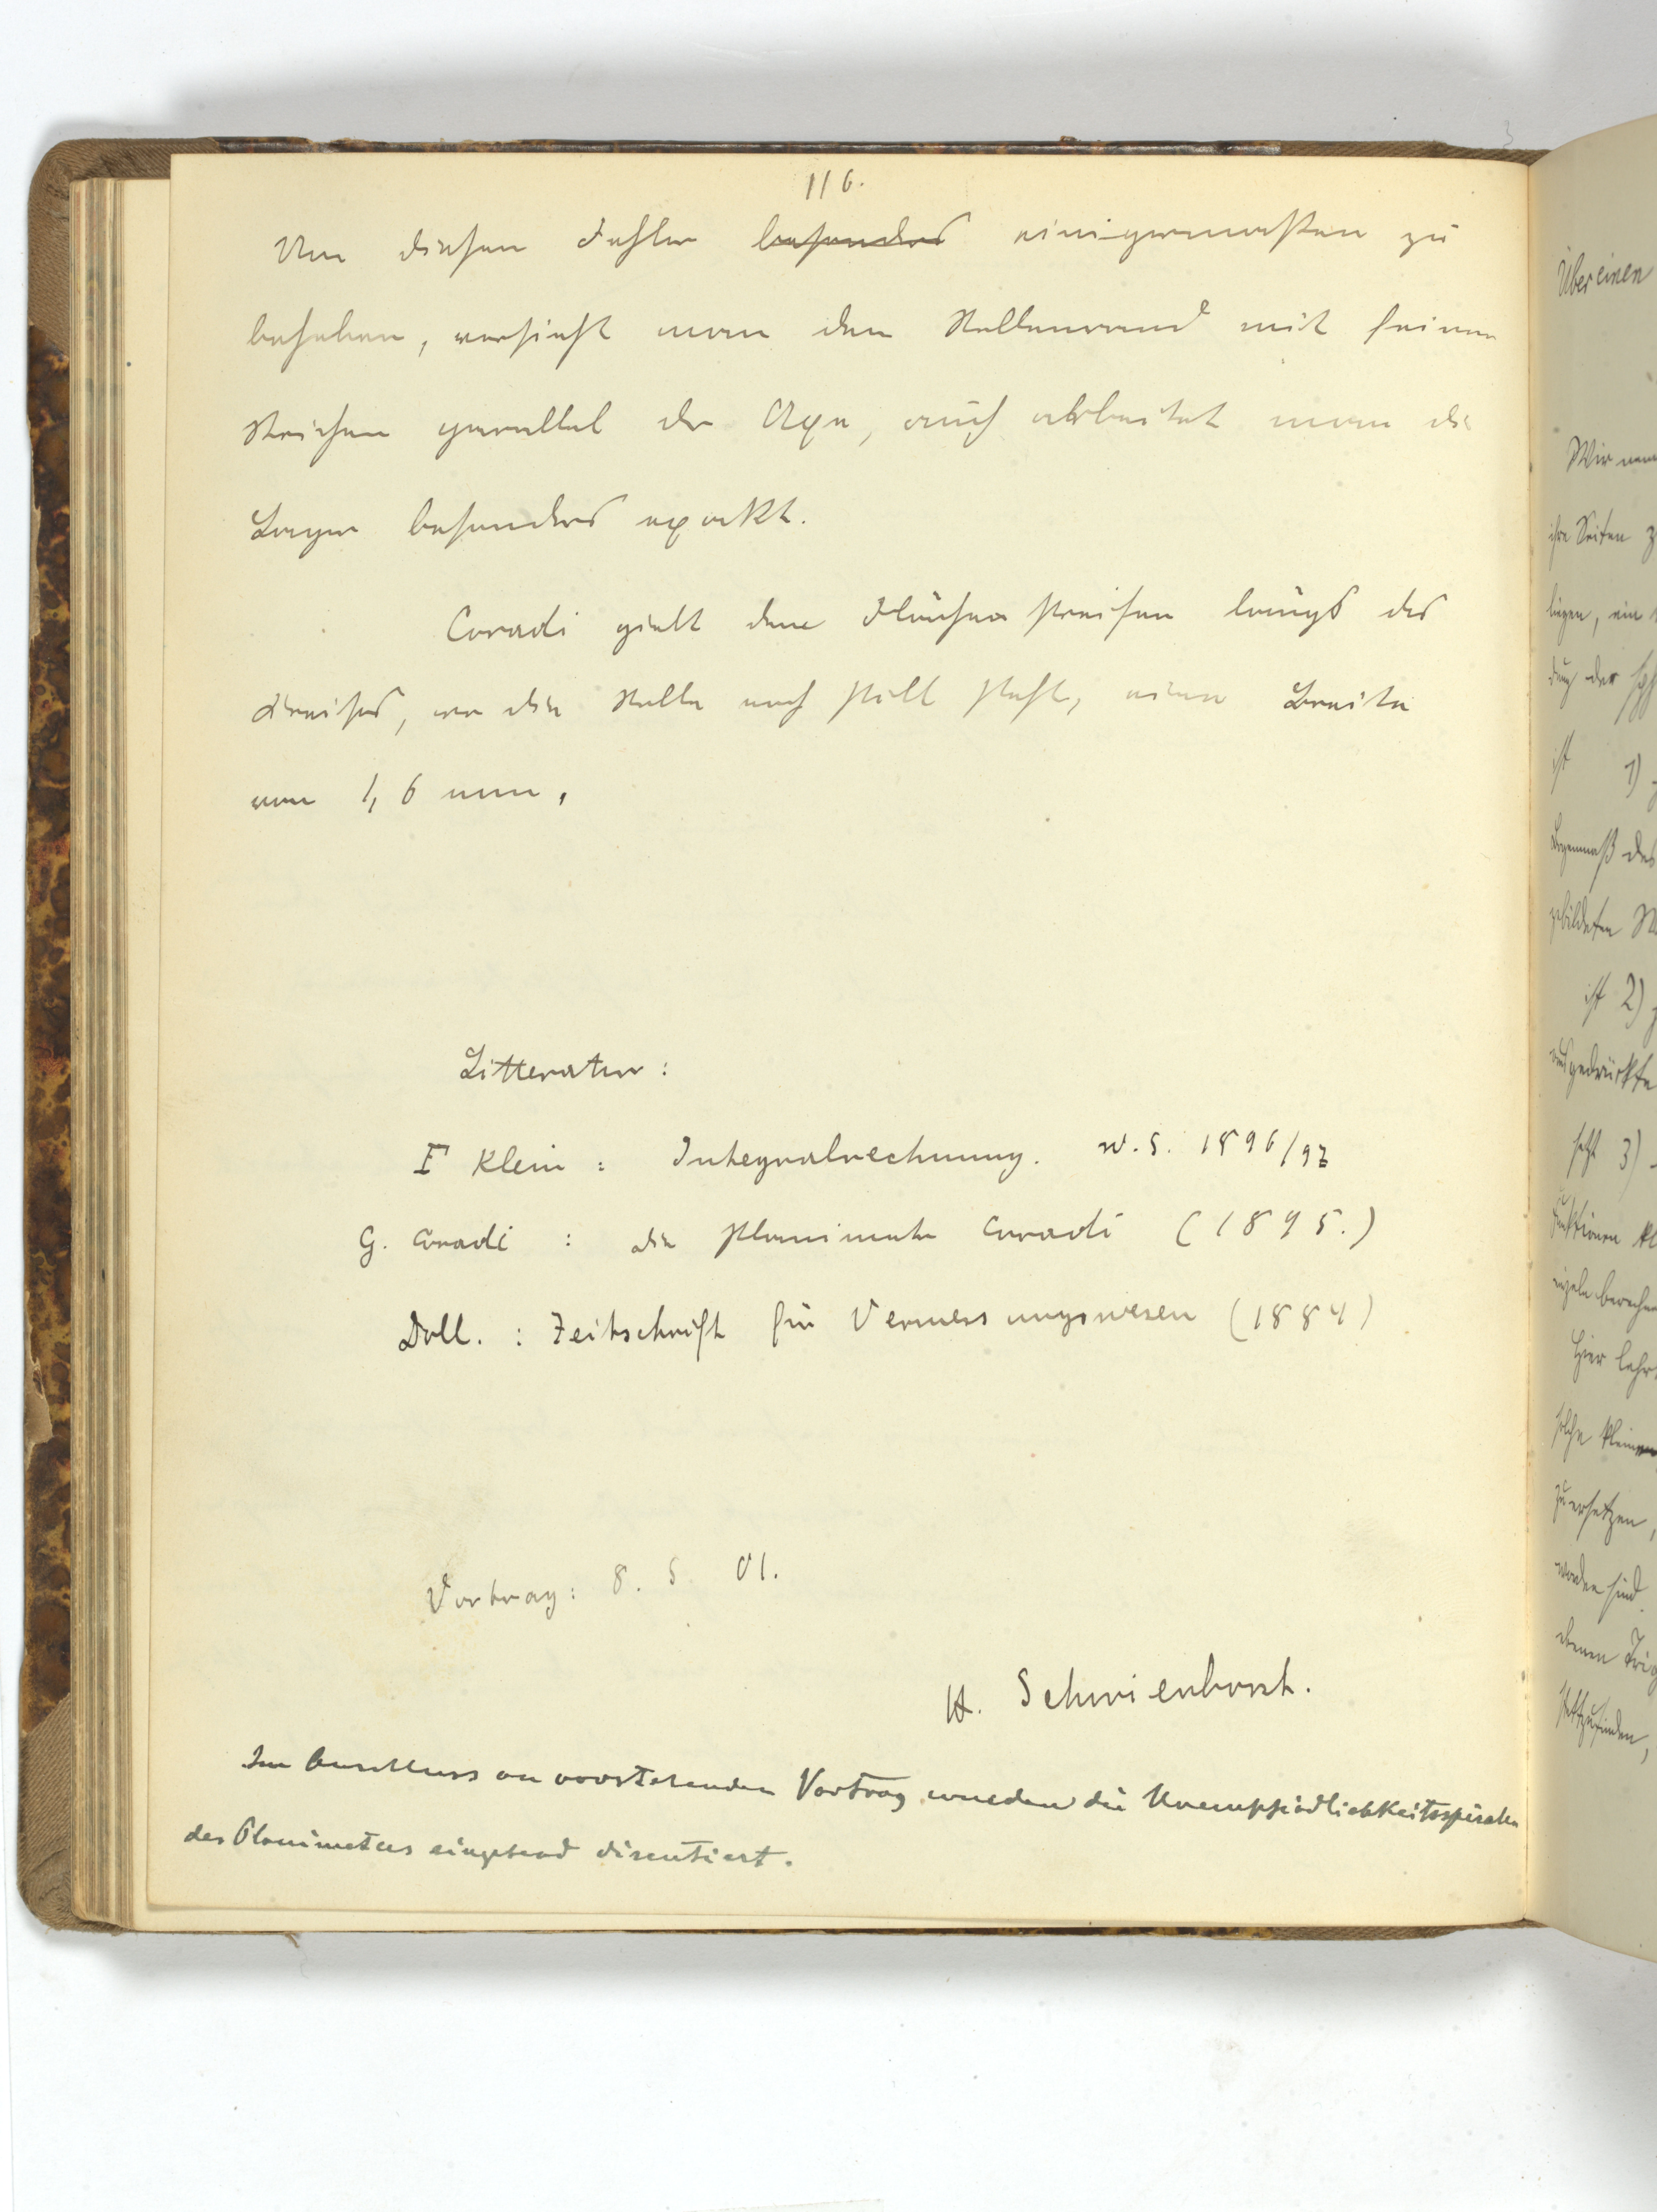 116.
Um diesen Fehler besonders einigermassen zu
beheben, versieht man den Rollenrand mit feinen
Strichen parallel der Axe, auch arbeitet man die
Lager besonders exakt.
Coradi giebt dem Flächenstreifen längs des
Kreises, wo die Rolle noch still steht, eine Breite
von 1,6 mm.
Litteratur:
F Klein: Integralrechnung. W.S. 1896/97
G. Coradi : die Planimeter Coradi (1895.)
Doll. : Zeitschrift für Vermessungswesen (1884)
Vortrag: 8. 5. 01.
H. Schwienhorst.
Im Anschluss an vorstehenden Vortrag wurden die Unempfindlichkeitsspiralen
des Planimeters eingehend discutiert.
Über einen
Wir
ihre Seiten
liegen, ein
dung der
ist 1)
Bogenmaß des
gebildeten
ist 2)
ausgedrückte
setzt 3)
Funktionen
einzeln
Hier
solche kleinen
zu ersetzen,
worden sind.
ebenen
stattzufinden,